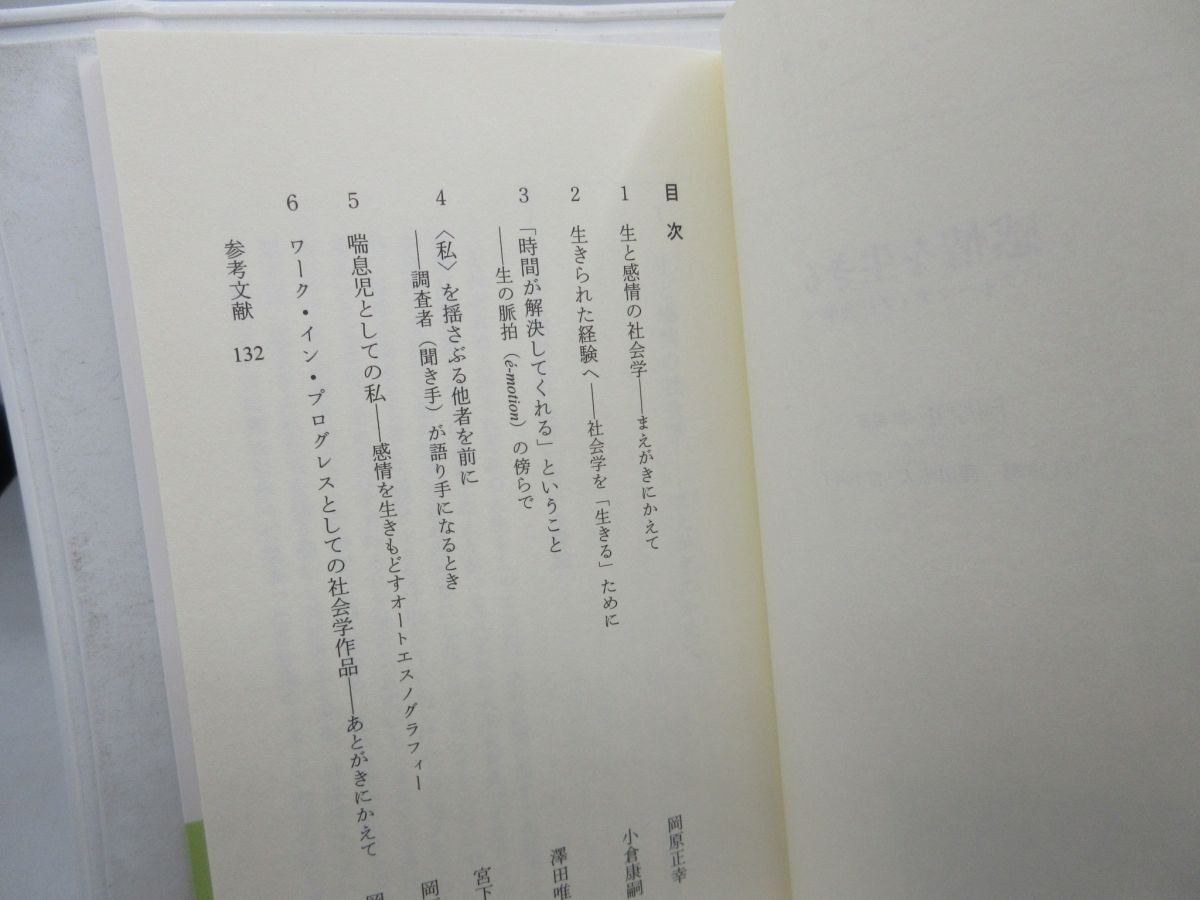 目次
1 生と感情の社会学――まえがきにかえて 岡原正幸
2 生きられた経験へ――社会学を「生きる」ために 小倉康嗣
3 「時間が解決してくれる」ということ
――生の脈拍（é-motion）の傍らで 澤田唯
4 〈私〉を揺さぶる他者を前に
――調査者（聞き手）が語り手になるとき 宮下
5 喘息児としての私――感情を生きもどすオートエスノグラフィー 岡
6 ワーク・イン・プログレスとしての社会学作品――あとがきにかえて
参考文献 132